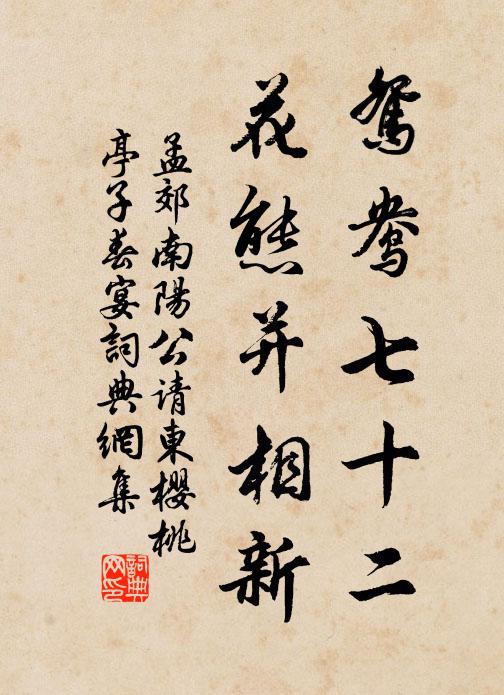 鴛鴦七十二
花態并相新
孟郊南陽公请東櫻桃
亭子春宴詞典網集
詞典网印